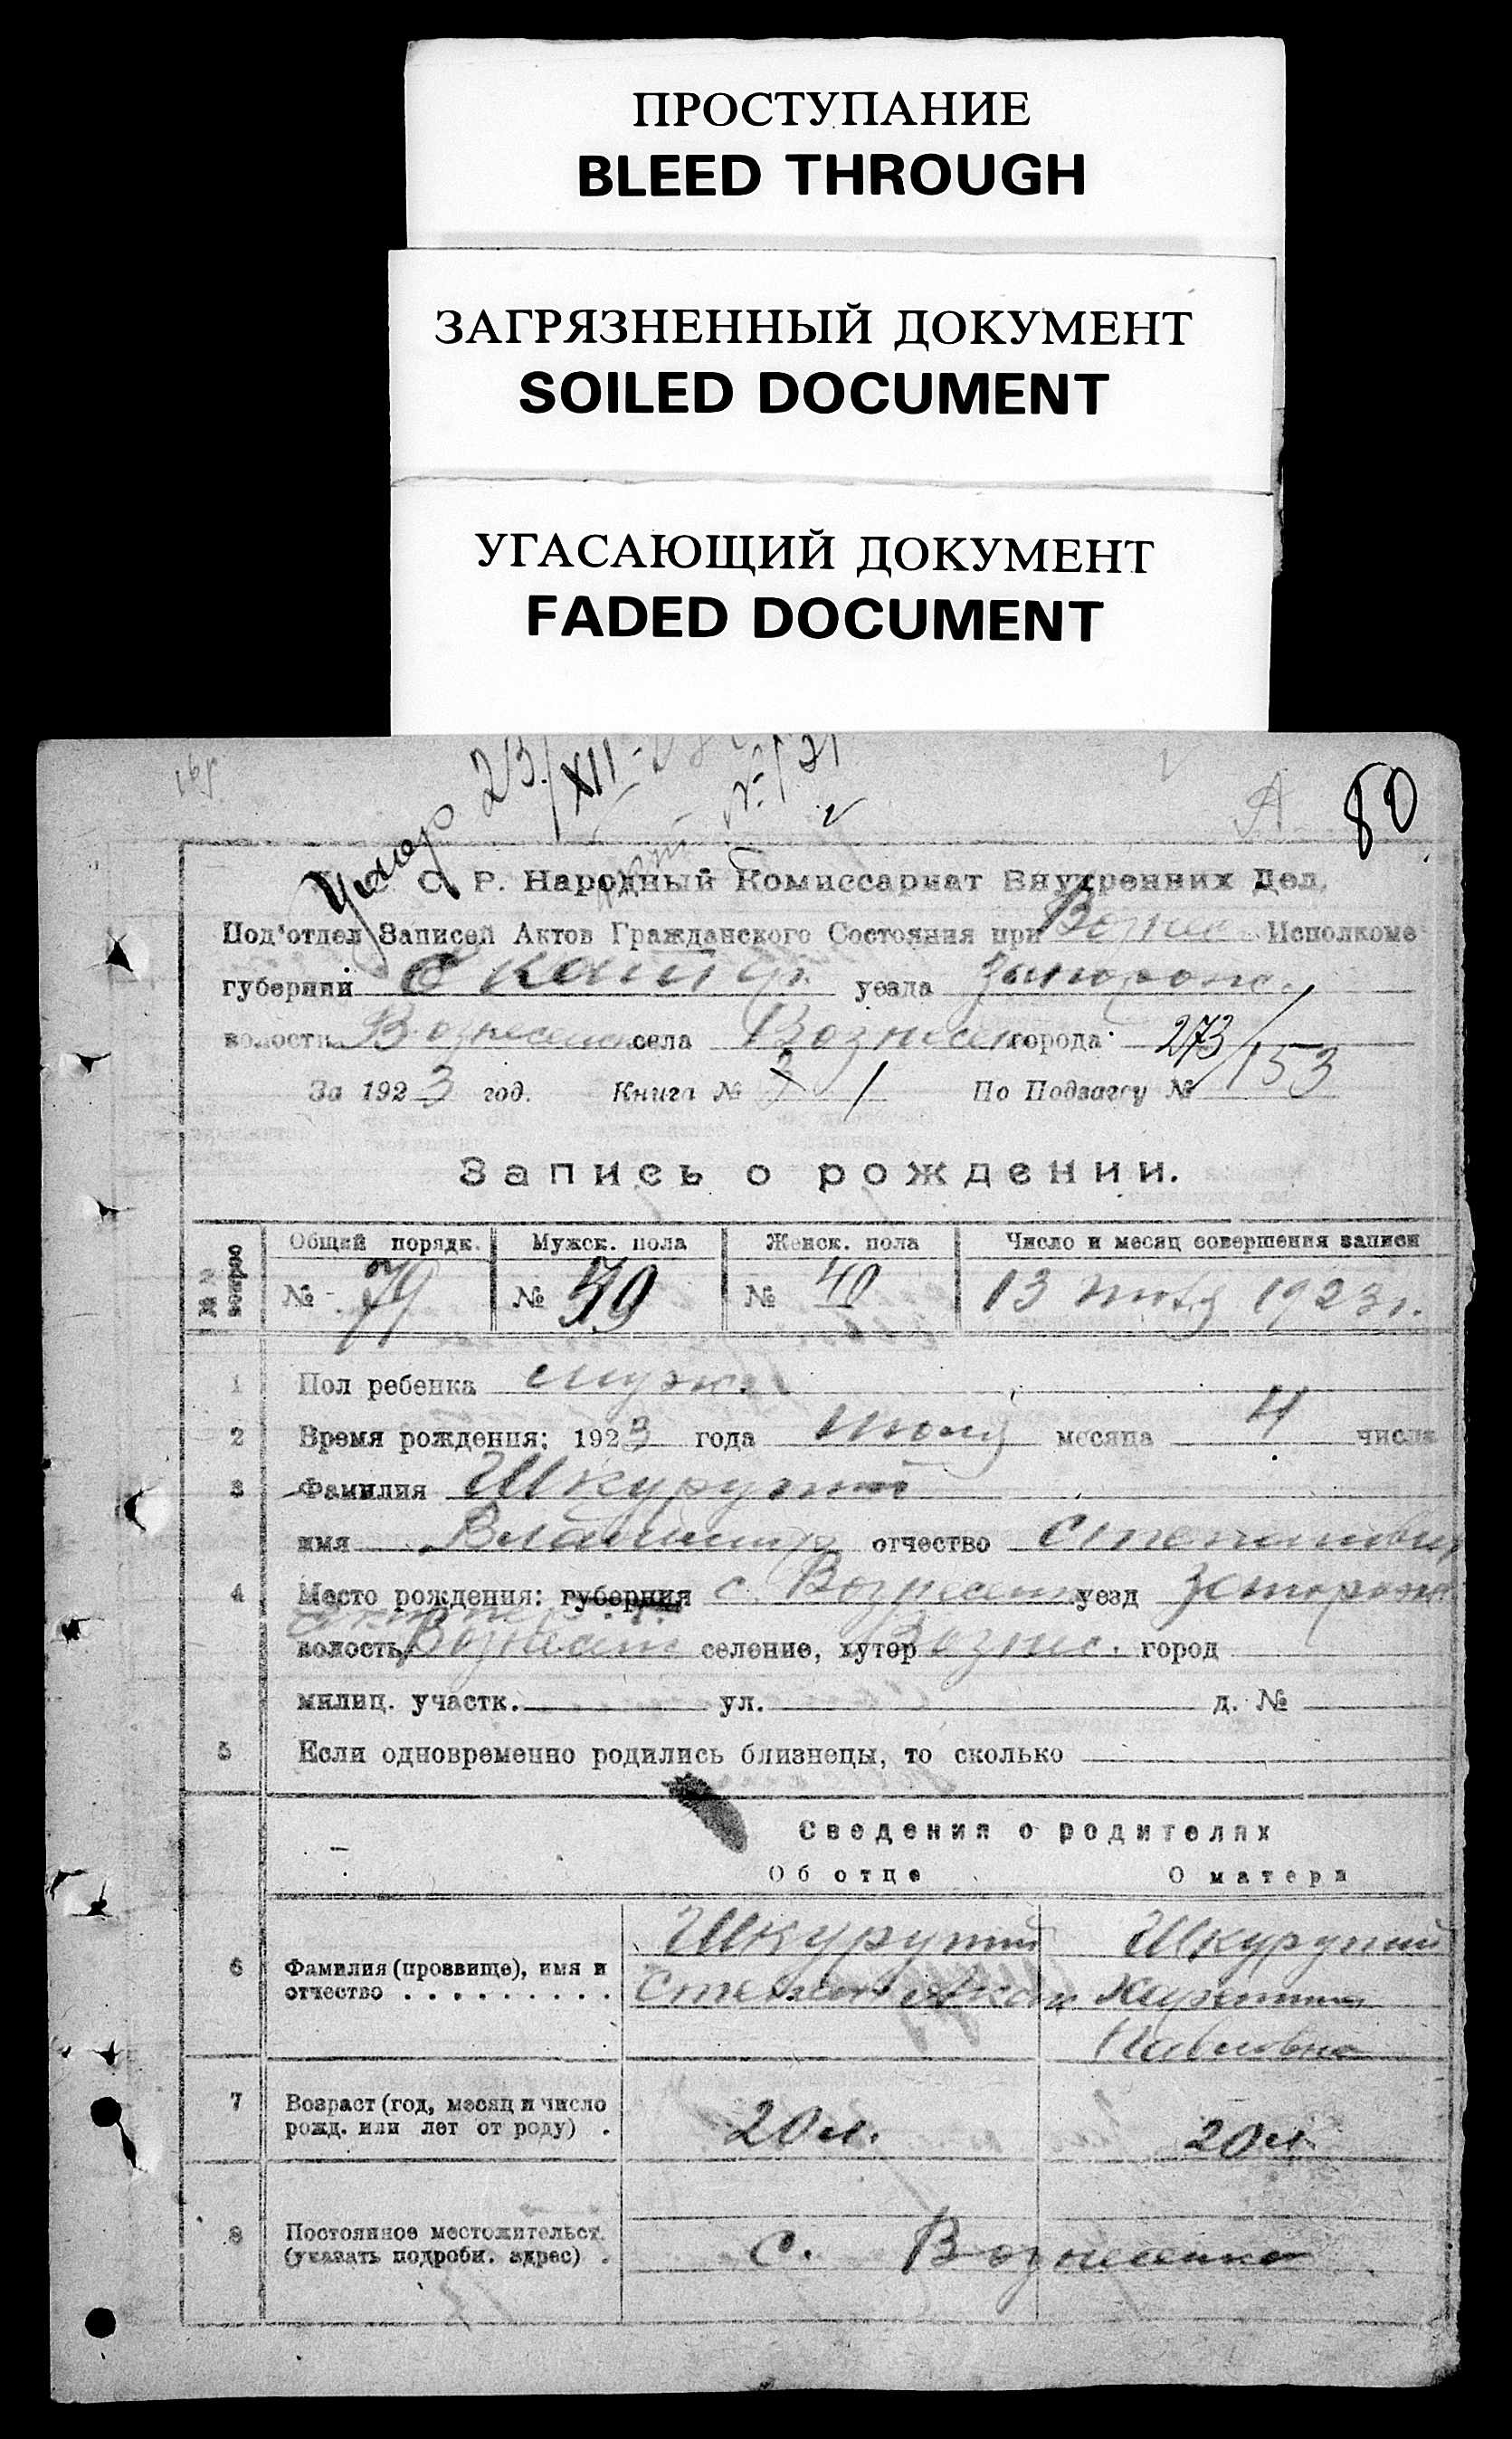 ПРОСТУПАНИЕ
BLEED THROUGH
ЗАГРЯЗНЕННЫЙ ДОКУМЕНТ
SOILED DOCUMENT
УГАСАЮЩИЙ ДОКУМЕНТ
FADED DOCUMENT
23/XII
80
С. Р. Народный Комиссариат Внутренних Дел.
Под'отдел Записей Актов Гражданского Состояния при Вознес Исполкоме
губернии Екат уезда Запорож.
волости Вознесен села Вознесен города 273/153
За 1923 год. Книга № 1 По Подзагсу №
Запись о рождении.
№№ вопрос Общий порядк. Мужск. пола Женск. пола Число и месяц совершения записи
№ 79 № 39 № 40 13 июля 1923 г.
1 Пол ребенка мужс.
2 Время рождения: 1923 года июля месяца 4 числа
3 Фамилия Шкурупий
имя Владимир отчество Степанович
4 Место рождения: губерния с. Вознесенка уезд Запорож
волость Вознесен селение, хутор Вознес. город
милиц. участк. ул. д. №
5 Если одновременно родились близнецы, то сколько
Сведения о родителях
Об отце О матери
6 Фамилия (прозвище), имя и отчество Шкурупий Шкурупий
Степан
Павловна
7 Возраст (год, месяц и число рожд. или лет от роду) 20 л. 20 л.
8 Постоянное местожительст. (указать подробн. адрес) с. Вознесенка